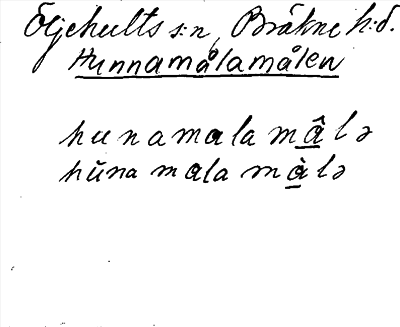 Öljehults s:n, Bräkne h:d.
Hunnamålamålen
hunamala mâlə
hŭna mala màlə